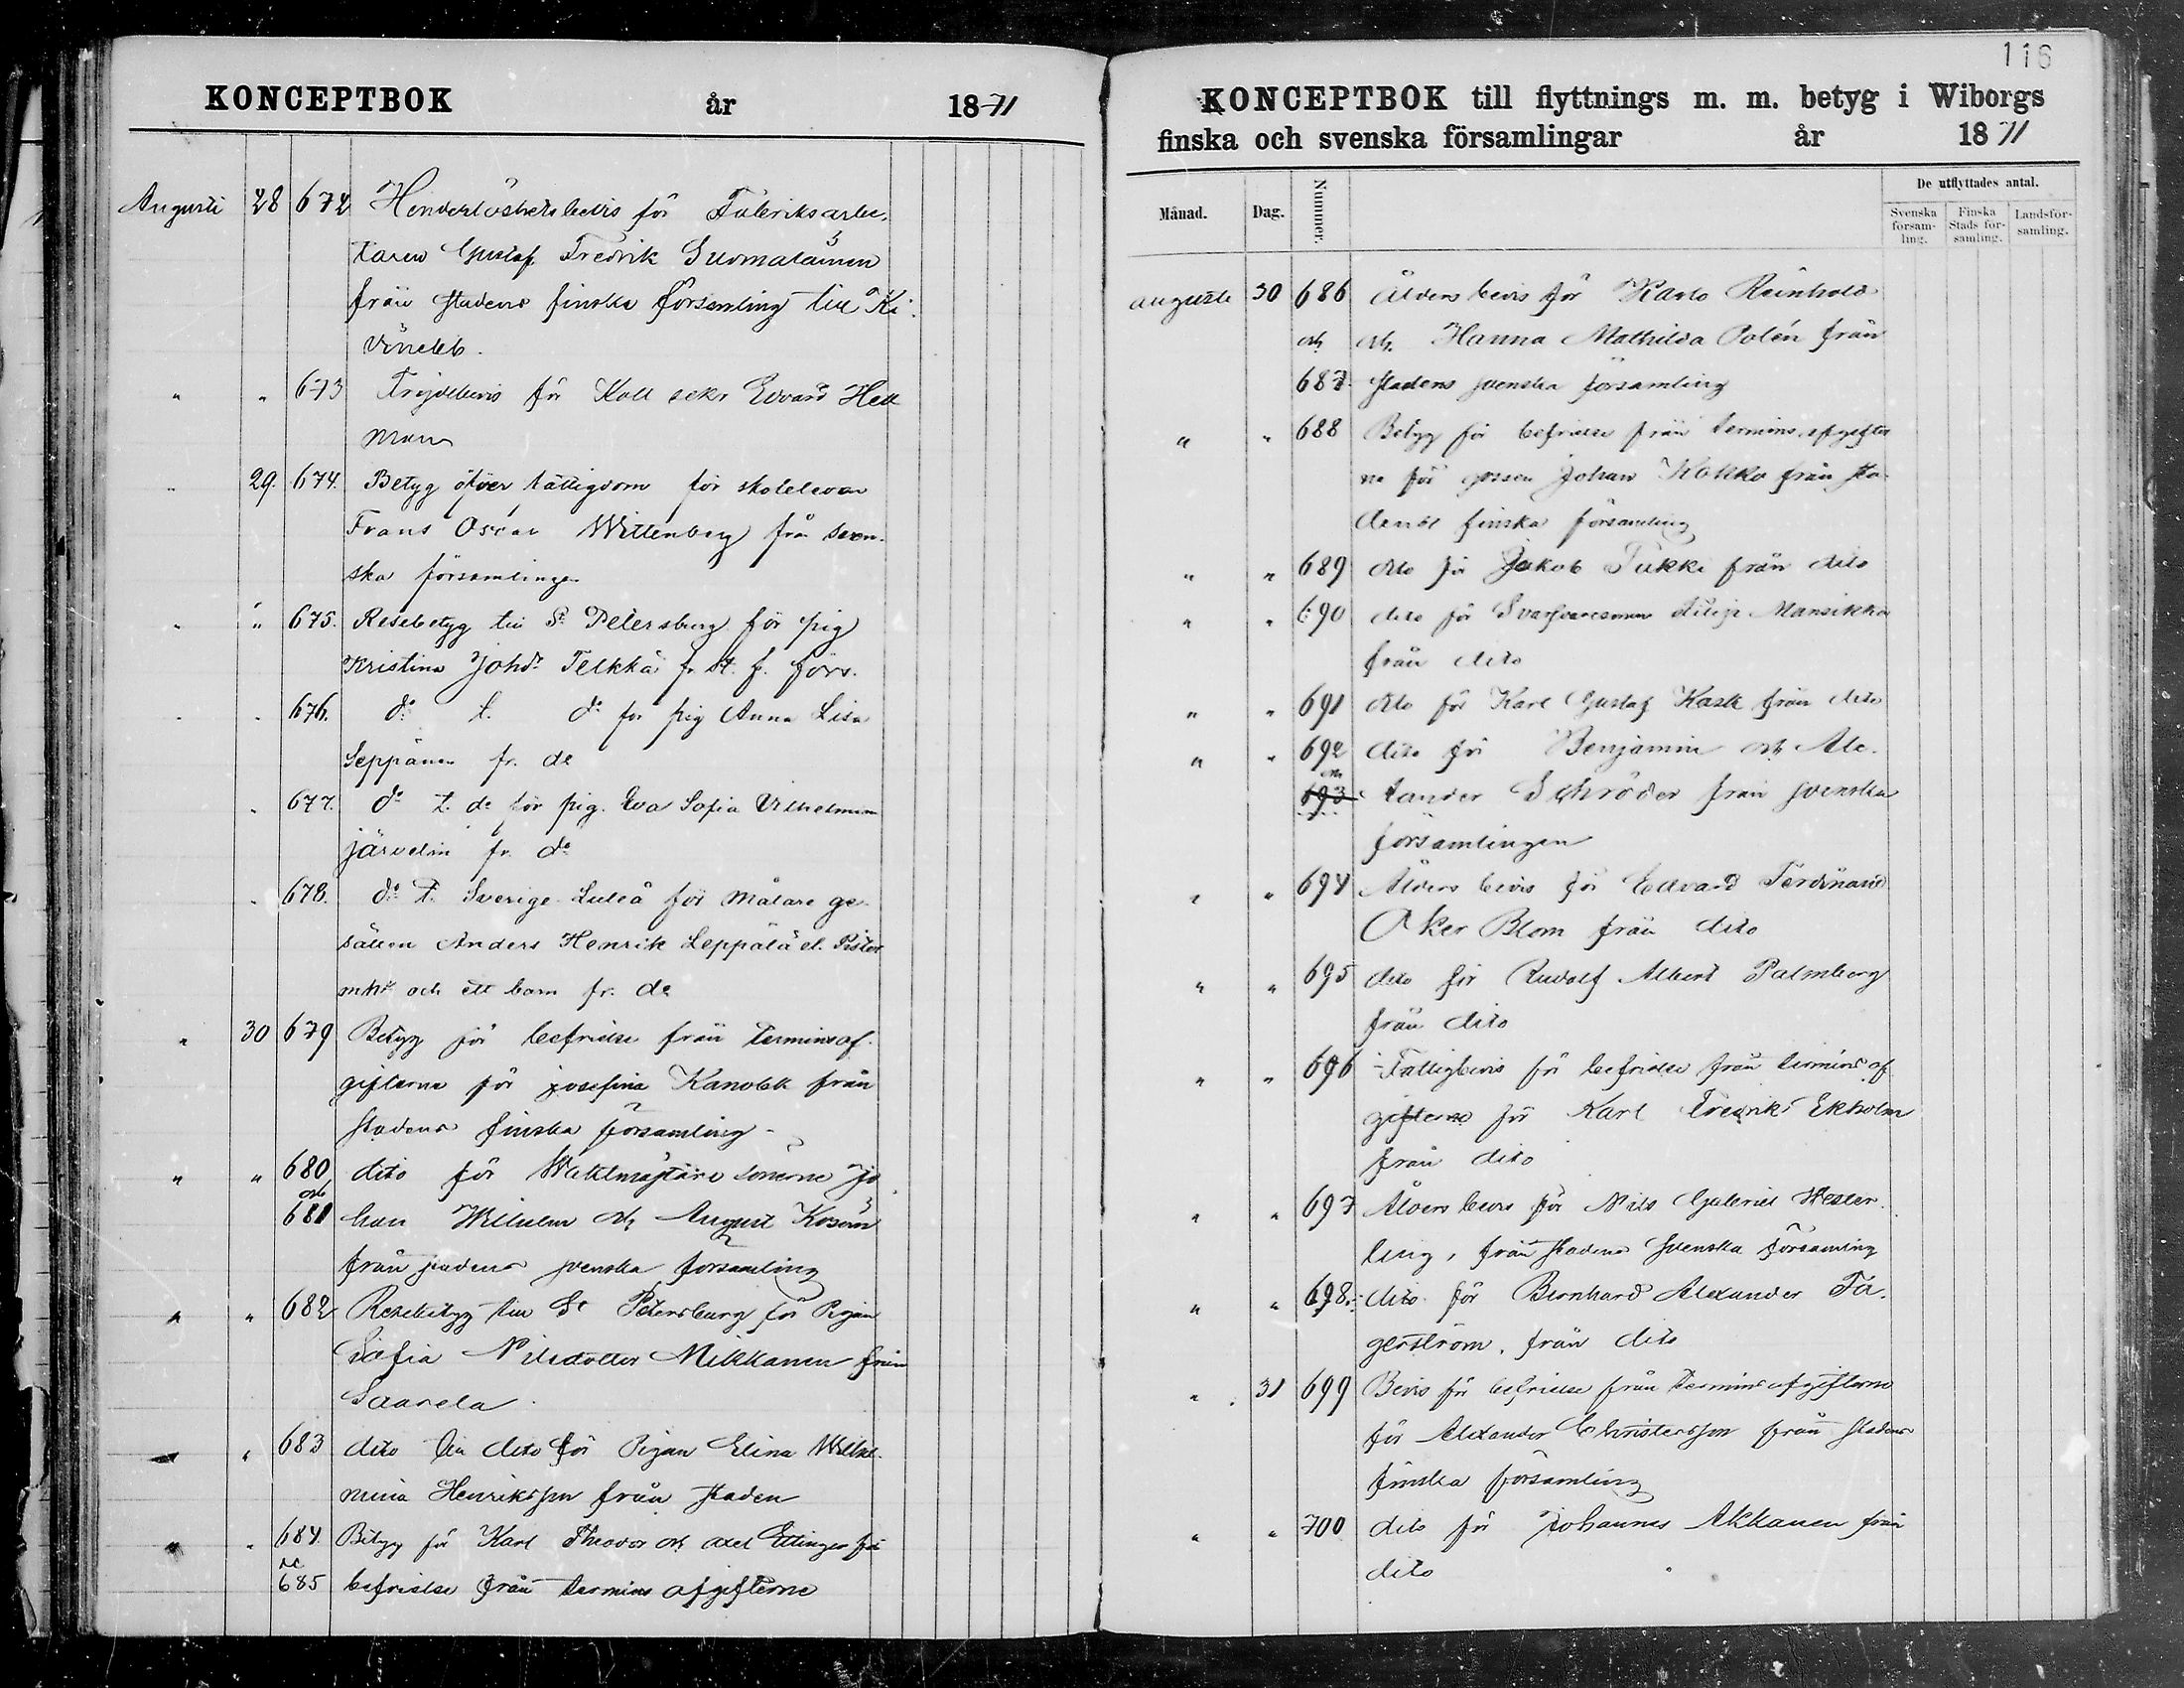 KONCEPTBOK år 1871
Augusti 28 672 Hinderlöshetsbevis för Fabriksarbe-
taren Gustaf Fredrik Suomalainen
från stadens finska församling till Ki-
vinebb.
" " 673 Frejdebevis för Koll sekr Edvard Hell
man
" 29. 674. Betyg öfver fattigdom för skoleleven
Frans Oscar Wittenberg från sven-
ska församlingen
" " 675. Resebetyg till St. Petersburg för pig
Kristina Johdr Telkkä fr. St. f. förs.
" " 676. do t. do för pig Anna Lisa
Seppänen fr. do
" 677. do t. do för pig. Eva Sofia Vilhelmina
Järvelin fr. do
" 678. do t. Sverige Luleå för Målare ge-
sällen Anders Henrik Leppälä el. Pister
m hu och ett barn fr. do
" 30 679 Betyg för befrielse från terminsaf-
gifterna för Josefina Kanolik från
stadens finska församling
" " 680 dito för Waktmästare sönerne Jo
och
681 han Wilhelm och August Kosonen
från stadens svenska församling
" " 682 Resebetyg till St Petersburg för Pigan
Sofia Nilsdotter Mikkanen från
Saarela
" " 683 dito till dito för Pigan Elina Wilhel-
mina Henriksson från staden
" " 684. Betyg för Karl Theodor och Axel Ettinger för
och
685 befrielse från termins afgifterne
116
KONCEPTBOK till flyttnings m. m. betyg i Wiborgs
finska och svenska församlingar år 1871
Månad. Dag. Nummer. De utflyttades antal.
Svenska församling. Finska Stads församling. Landsförsamling.
Augusti 30 686 Åldersbevis för Karlo Reinhold
och och Hanna Mathilda Polén från
687. stadens svenska församling
" " 688 Betyg för befrielse från terminsafgifter
na för gossen Johan Kokko från sta-
dens finska församling
" " 689 dito för Jakob Tukki från dito
" " 690 dito för Svarfvaresonen Filip Mansikka
från dito
" " 691 dito för Karl Gustaf Kask från dito
" " 692 dito för Benjamin och Ale-
och
693 xander Schröder från svenska
församlingen
" " 694 Åldersbevis för Edvard Ferdinand
Åker Blom från dito
" " 695 dito för Rudolf Albert Palmberg
från dito
" " 696 Fattigbevis för befrielse från termins af
gifterne för Karl Fredrik Ekholm
från dito
" " 697 Åldersbevis för Nils Gabriel Wester-
ling, från stadens svenska församling
" " 698. dito för Bernhard Alexander Fa-
gerström, från dito
" 31 699 Bevis för befrielse från terminsafgifterne
för Alexander Christersson från stadens
finska församling
" " 700 dito för Johannes Akkanen från
dito